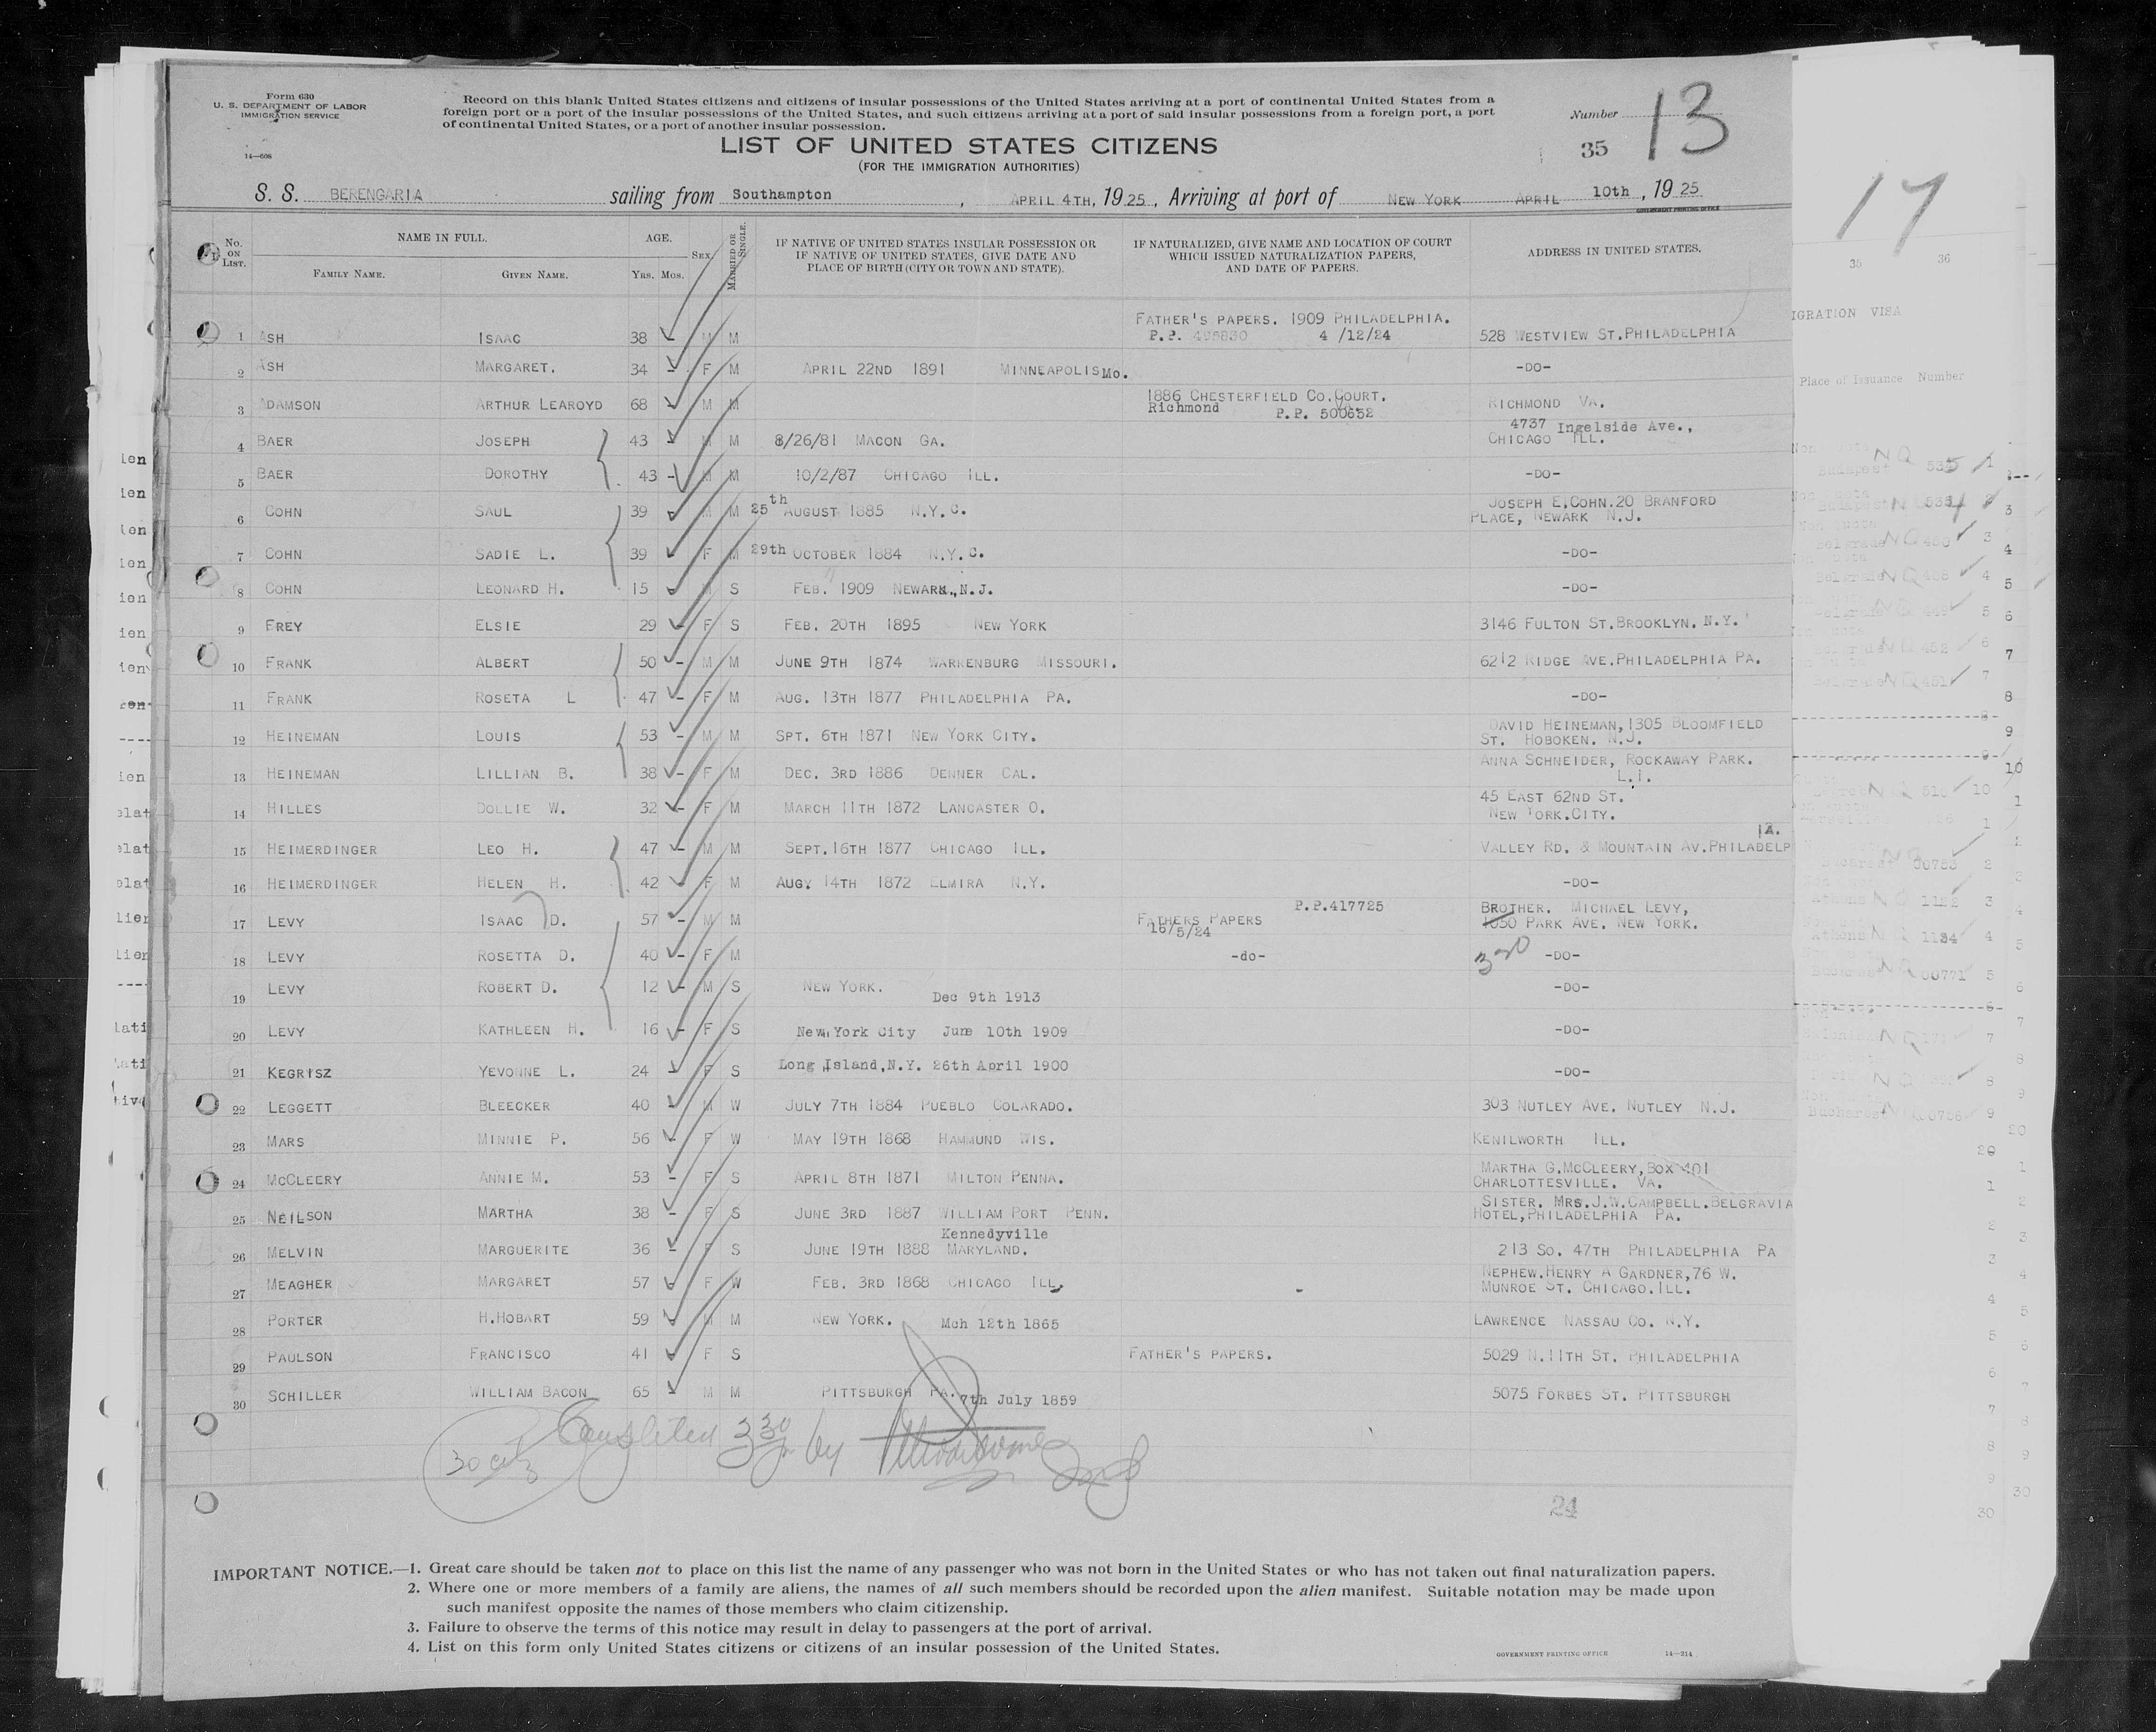 Form 630
U. S. DEPARTMENT OF LABOR
IMMIGRATION SERVICE
14—608
Record on this blank United States citizens and citizens of insular possessions of the United States arriving at a port of continental United States from a
foreign port or a port of the insular possessions of the United States, and such citizens arriving at a port of said insular possessions from a foreign port, a port
of continental United States, or a port of another insular possession.
Number 13
35
LIST OF UNITED STATES CITIZENS
(FOR THE IMMIGRATION AUTHORITIES)
S. S. BERENGARIA sailing from Southampton, APRIL 4TH, 1925, Arriving at port of NEW YORK APRIL 10th, 1925
GOVERNMENT PRINTING OFFICE
No. ON LIST. NAME IN FULL. FAMILY NAME. GIVEN NAME. AGE. YRS. MOS. SEX. MARRIED OR SINGLE. IF NATIVE OF UNITED STATES INSULAR POSSESSION OR IF NATIVE OF UNITED STATES, GIVE DATE AND PLACE OF BIRTH (CITY OR TOWN AND STATE). IF NATURALIZED, GIVE NAME AND LOCATION OF COURT WHICH ISSUED NATURALIZATION PAPERS, AND DATE OF PAPERS. ADDRESS IN UNITED STATES.
1 ASH ISAAC 38 M M FATHER'S PAPERS. 1909 PHILADELPHIA. P.P. 495830 4 /12/24 528 WESTVIEW ST.PHILADELPHIA
2 ASH MARGARET. 34 F M APRIL 22ND 1891 MINNEAPOLIS Mo. -DO-
3 ADAMSON ARTHUR LEAROYD 68 M M 1886 CHESTERFIELD Co.COURT. Richmond P.P. 500652 RICHMOND VA.
4 BAER JOSEPH 43 M M 8/26/81 MACON GA. 4737 Ingelside Ave., CHICAGO ILL.
5 BAER DOROTHY 43 M M 10/2/87 CHICAGO ILL. -DO-
6 COHN SAUL 39 M M 25th AUGUST 1885 N.Y.C. JOSEPH E.COHN.20 BRANFORD PLACE, NEWARK N.J.
7 COHN SADIE L. 39 F M 29th OCTOBER 1884 N.Y.C. -DO-
8 COHN LEONARD H. 15 M S FEB. 11 1909 NEWARK.,N.J. -DO-
9 FREY ELSIE 29 F S FEB. 20TH 1895 NEW YORK 3146 FULTON ST.BROOKLYN. N.Y.
10 FRANK ALBERT 50 M M JUNE 9TH 1874 WARRENBURG MISSOURI. 6212 RIDGE AVE.PHILADELPHIA PA.
11 FRANK ROSETA L 47 F M AUG. 13TH 1877 PHILADELPHIA PA. -DO-
12 HEINEMAN LOUIS 53 M M SPT. 6TH 1871 NEW YORK CITY. DAVID HEINEMAN,1305 BLOOMFIELD ST. HOBOKEN. N.J.
13 HEINEMAN LILLIAN B. 38 F M DEC. 3RD 1886 DENNER CAL. ANNA SCHNEIDER, ROCKAWAY PARK. L.I.
14 HILLES DOLLIE W. 32 F M MARCH 11TH 1872 LANCASTER O. 45 EAST 62ND ST. NEW YORK.CITY.
15 HEIMERDINGER LEO H. 47 M M SEPT.16TH 1877 CHICAGO ILL. VALLEY RD. & MOUNTAIN AV.PHILADELP
16 HEIMERDINGER HELEN H. 42 F M AUGY 14TH 1872 ELMIRA N.Y. -DO-
17 LEVY ISAAC D. 57 M M P.P.417725 FATHERS PAPERS 16/5/24 BROTHER. MICHAEL LEVY, 1050 PARK AVE. NEW YORK.
18 LEVY ROSETTA D. 40 F M -do- -DO-
19 LEVY ROBERT D. 12 M S NEW YORK. Dec 9th 1913 -DO-
20 LEVY KATHLEEN H. 16 F S New York City June 10th 1909 -DO-
21 KEGRISZ YEVONNE L. 24 F S Long Island,N.Y. 26th April 1900 -DO-
22 LEGGETT BLEECKER 40 M W JULY 7TH 1884 PUEBLO COLARADO. 303 NUTLEY AVE. NUTLEY N.J.
23 MARS MINNIE P. 56 F W MAY 19TH 1868 HAMMUND WIS. KENILWORTH ILL.
24 MCCLEERY ANNIE M. 53 F S APRIL 8TH 1871 MILTON PENNA. MARTHA G.MCCLEERY,BOX 401 CHARLOTTESVILLE. VA.
25 NEILSON MARTHA 38 F S JUNE 3RD 1887 WILLIAM PORT PENN. SISTER. MRS.J.W.CAMPBELL.BELGRAVIA HOTEL,PHILADELPHIA PA.
26 MELVIN MARGUERITE 36 F S JUNE 19TH 1888 Kennedyville MARYLAND. 213 SO. 47TH PHILADELPHIA PA
27 MEAGHER MARGARET 57 F W FEB. 3RD 1868 CHICAGO ILL. NEPHEW.HENRY A GARDNER,76 W. MUNROE ST. CHICAGO.ILL.
28 PORTER H.HOBART 59 M M NEW YORK. Mch 12th 1865 LAWRENCE NASSAU CO. N.Y.
29 PAULSON FRANCISCO 41 F S FATHER'S PAPERS. 5029 N.11TH ST. PHILADELPHIA
30 SCHILLER WILLIAM BACON 65 M M PITTSBURGH PA. 7th July 1859 5075 FORBES ST. PITTSBURGH
24
IMPORTANT NOTICE.—1. Great care should be taken not to place on this list the name of any passenger who was not born in the United States or who has not taken out final naturalization papers.
2. Where one or more members of a family are aliens, the names of all such members should be recorded upon the alien manifest. Suitable notation may be made upon
such manifest opposite the names of those members who claim citizenship.
3. Failure to observe the terms of this notice may result in delay to passengers at the port of arrival.
4. List on this form only United States citizens or citizens of an insular possession of the United States.
GOVERNMENT PRINTING OFFICE 14—214
17
35 36
IGRATION VISA
Place of Issuance Number